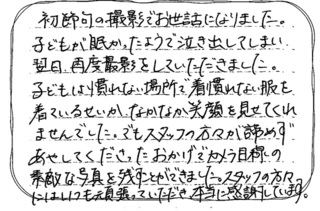 初節句の撮影でお世話になりました。
子どもが眠かったようで泣き出してしまい
翌日、再度撮影をしていただきました。
子どもは慣れない場所で着慣れない服を
着ているせいか、なかなか笑顔を見せてくれ
ませんでした。でもスタッフの方々が諦めず
あやしてくださったおかげで
素敵な写真を残すことができました。スタッフの方々
にはいつも頑張っていただき、本当に感謝しています。